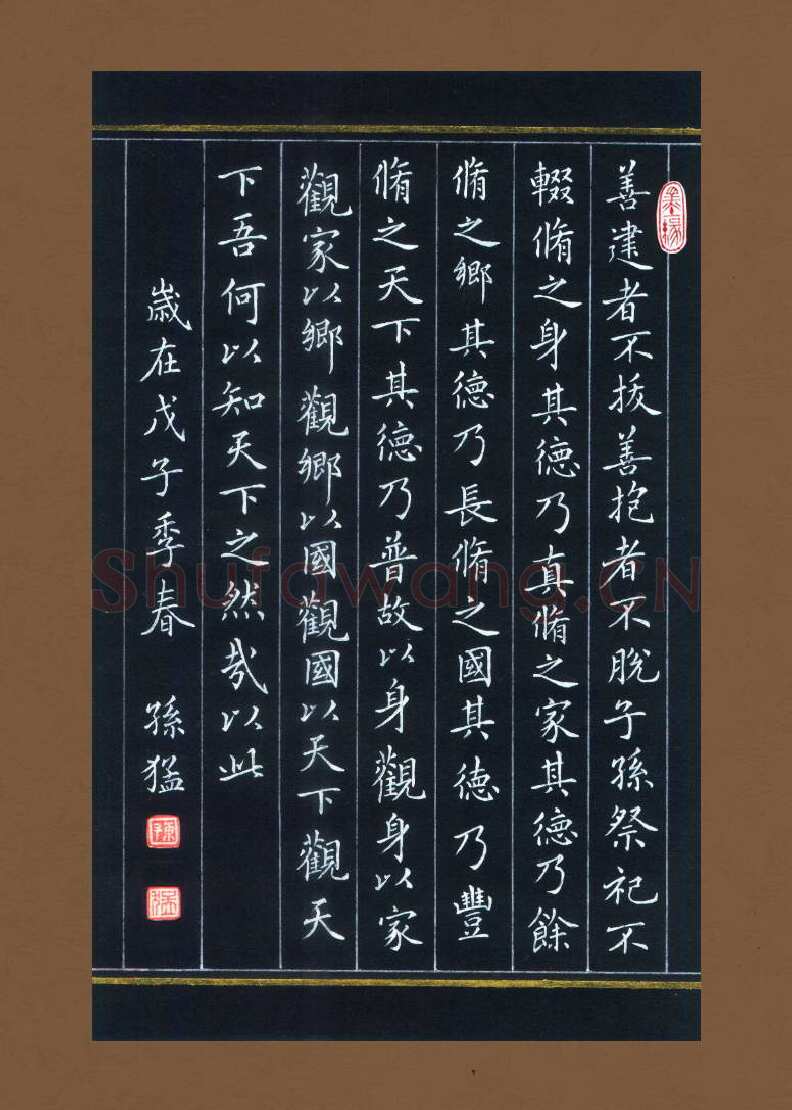 善建者不拔善抱者不脫子孫祭祀不
輟脩之身其德乃真脩之家其德乃餘
脩之鄉其德乃長脩之國其德乃豐
脩之天下其德乃普故以身觀身以家
觀家以鄉觀鄉以國觀國以天下觀天
下吾何以知天下之然哉以此
歲在戊子季春 孫猛
Shufawang.CN